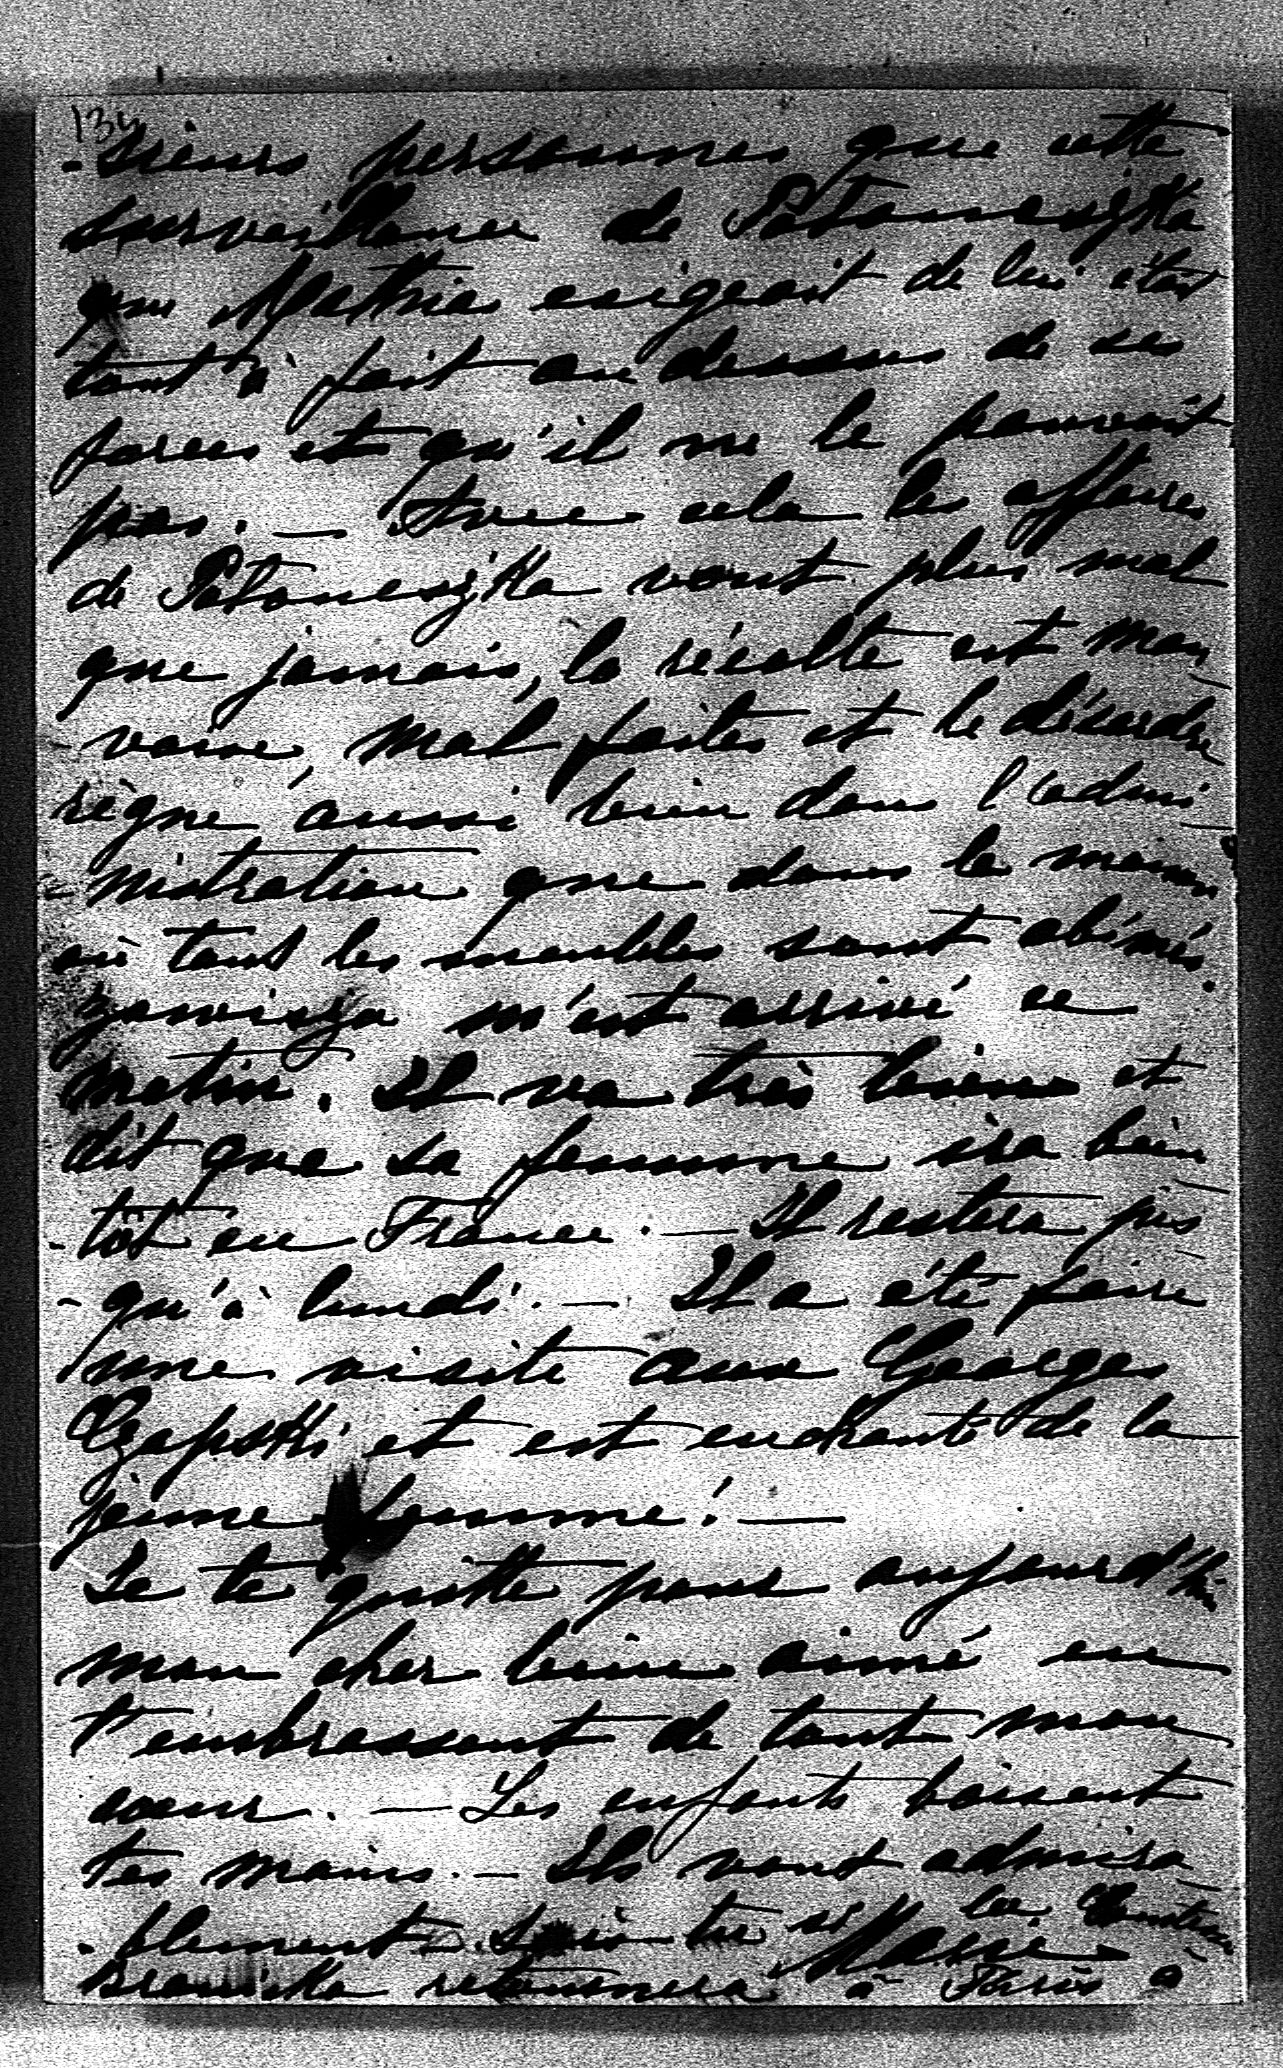 134
-sieurs personnes que cette
surveillance de Patoneszjka
que Mathias exigeait de lui était
tout à fait au dessus de ses
forces et qu'il ne le pouvait
pas. — Avec cela les affaires
de Patoneszjka vont plus mal
que jamais, la récolte est mau-
-vaise, mal faites et le désordre
règne aussi bien dans l'admi-
-nistration que dans la maison
où tous les meubles sont abîmés.
Zawisza m'est arrivé ce
matin. Il va très bien et
dit que sa femme ira bien-
-tôt en France. — Il restera jus-
-qu'à lundi. — Il a été faire
une visite aux Georges
Czapski et est enchanté de la
jeune femme! —
Je te quitte pour aujourd'hui
mon cher bien aimé en
t'embrassant de tout mon
cœur. — Les enfants baisent
tes mains. — Ils vont admira-
-blement. Sais-tu si la Comtesse
Branicka retournera à Paris?
Marie